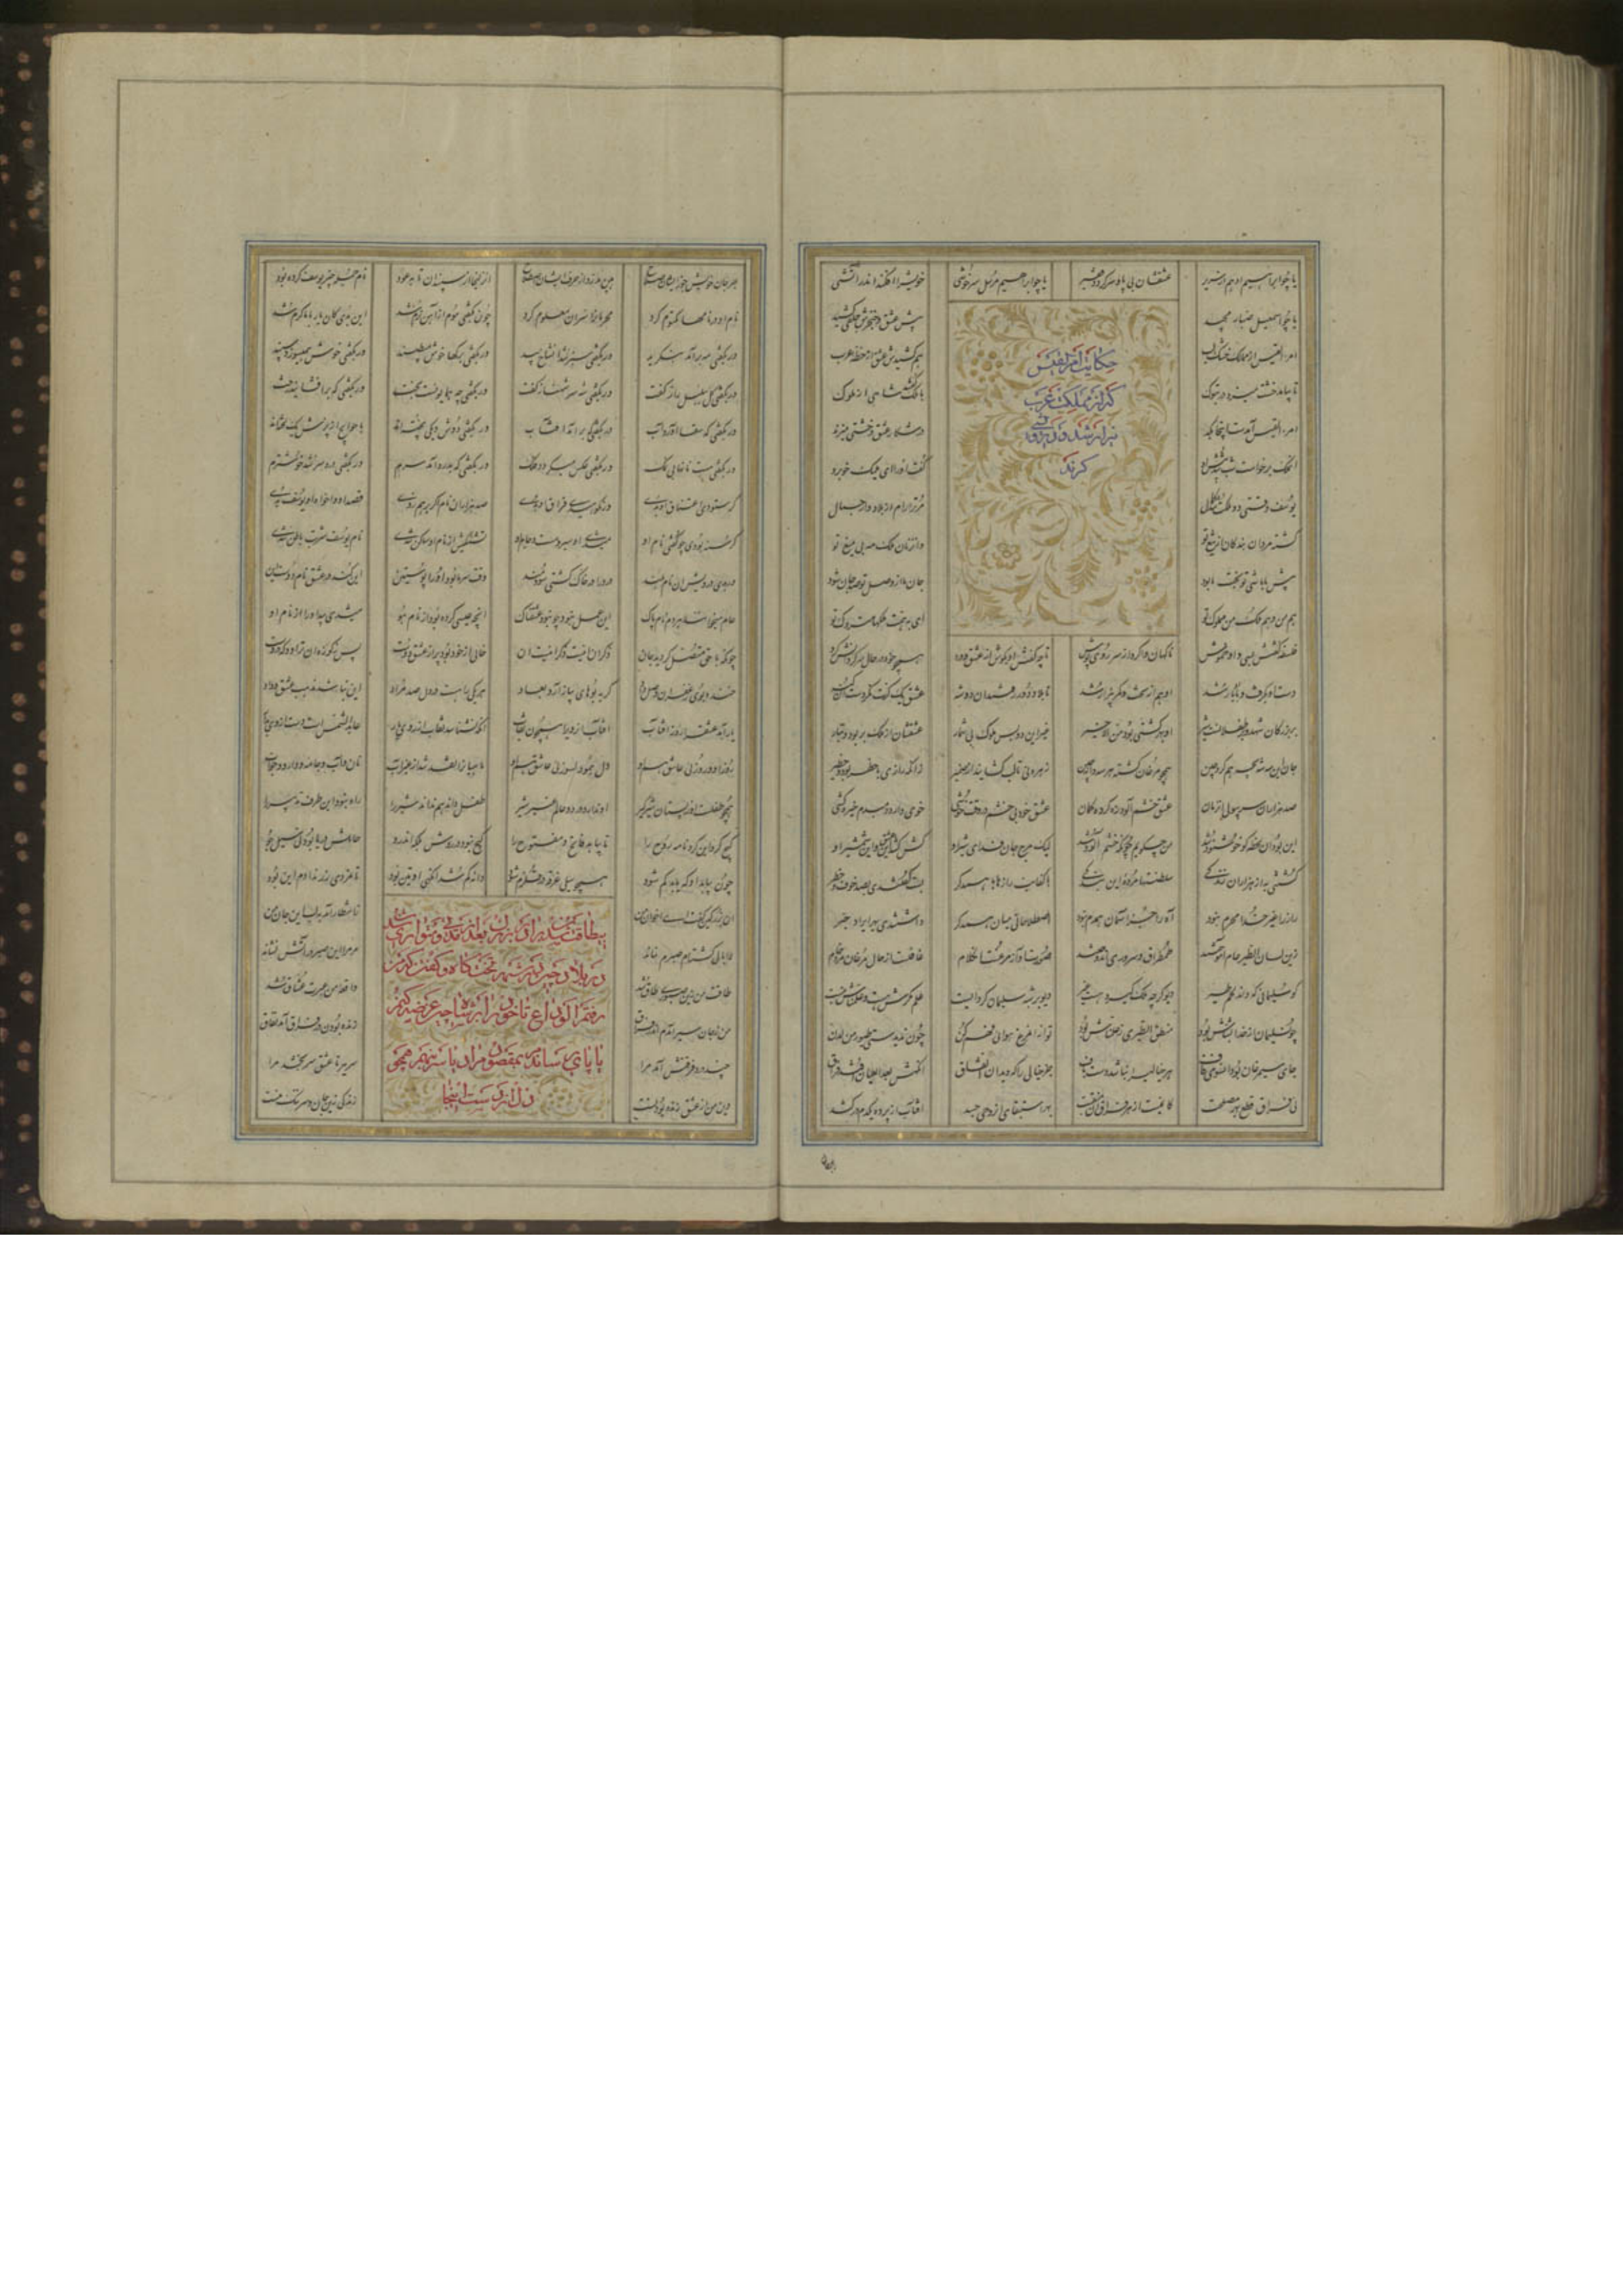 یا چو ابراهیم ادهم از سریر عشقشان بی پا و سر کرد و فقیر یا چو ابراهیم مرسل سرخوشی خویش را افکند اندر آتشی
یا چو اسمعیل صبار مجید پیش عشق و خنجرش حلقی کشید
حکایت امرء القیس
که از مملکت عرب
بیزار شد و
کردند
امرء القیس از ممالک خشک لب هم کشیدش عشق از خطه عرب
تا بیامد خشت میزد در تبوک با ملک گفتند شاهی از ملوک
امرء القیس آمدست اینجا بکد در شکار عشق و خشتی میزند
آن ملک برخاست شب شد پیش او گفت او را ای ملیک خوبرو
یوسف وقتی دو ملکت شد کمال مر ترا رام از بلاد و از جمال
گشته مردان بندگان از تیغ تو وان زنان ملک مه بی میغ تو
پیش ما باشی تو بخت ما بود جان ما از وصل تو صد جان شود
هم من و هم ملک من مملوک تو ای بهمت ملکها متروک تو
فلسفه گفتش بسی و او خموش ناگهان وا کرد از سر روی پوش تا چه گفتش او بگوش از عشق و درد همچو خود در حال سرگردانش کرد
دست او بگرفت و با او یار شد او هم از تخت و کمر بیزار شد تا بلاد دور رفتند این دو شه عشق یک کرت نکردست این گنه
بر بزرگان شهد و بر طفلانست شیر او بهر کشتی بود من الاخیر غیر این دو بس ملوک بی شمار عشقشان از ملک بربود و تبار
جان این سه شه بچه هم گرد چین همچو مرغان گشته هر سو دانه چین زهره نی تا لب گشایند از ضمیر زانکه رازی با خطر بود و خطیر
صد هزاران سر بپولی آن زمان عشق خشم آلود زه کرده کمان عشق خود بی خشم در وقت خوشی خوی دارد دم بدم خیره کشی
این بود آن لحظه کو خشنود شد من چگویم چونکه خشم آلود شد لیک مرج جان فدای شیر او کش کشد این عشق و این شمشیر او
کشتنی به از هزاران زندگی سلطنتها مرده این بندگی با کنایت رازها با همدگر پست گفتندی بصد خوف و حذر
راز را غیر خدا محرم نبود آه را جز آسمان همدم نبود اصطلاحاتی میان همدگر داشتندی بهر ایراد خبر
زین لسان الطیر عام آموختند طمطراق و سروری اندوختند صورت آواز مرغست آن کلام غافلست از حال مرغان مرد خام
کو سلیمانی که داند لحن طیر دیو گرچه ملک گیرد هست غیر دیو بر شبه سلیمان کرد ایست علم مکرش هست و علمناش نیست
چون سلیمان از خدا بشاش بود منطق الطیری ز علمناش بود تو از آن مرغ هوایی فهم کن چون ندیدستی طیور من لدن
جای سیمرغان بود آن سوی قاف هر خیالی را نباشد دست باف جز خیالی را که دید آن اتفاق آنگهش بعد العیان افتد فراق
نی فراق قطع بهر مصلحت کایمنست از هر فراق آن منقبت بهر استبقای آن روحی جسد آفتاب از پرده یکدم درکشد
بهر جان خویش جو زیشان صلاح هین مدزد از حرف ایشان اصطلاح آن زلیخا از سپندان تا بعود نام جمله چیز یوسف کرده بود
نام او در نامها مکتوم کرد محرمان را سر آن معلوم کرد چون بگفتی موم ز آتش نرم شد این بدی کان یار با ما گرم شد
ور بگفتی مه برآمد بنگرید ور بگفتی سبز شد آن شاخ بید ور بگفتی برگها خوش میطپند ور بگفتی خوش همی سوزد سپند
ور بگفتی گل ببلبل راز گفت ور بگفتی شه سر شهناز گفت ور بگفتی چه همایونست بخت ور بگفتی که برافشانید رخت
ور بگفتی که سقا آورد آب ور بگفتی که برآمد آفتاب ور بگفتی دوش دیگی پخته اند یا حوایج از پزش یک لخته اند
ور بگفتی هست نانها بی نمک ور بگفتی عکس میگردد فلک ور بگفتی که بدرد آمد سرم ور بگفتی درد سر شد خوشترم
گر ستودی اعتناق او بدی ور نکوهیدی فراق او بدی صد هزاران نام گر بر هم زدی قصد او و خواه او یوسف بدی
گرسنه بودی چو گفتی نام او میشدی او سیر و مست جام او تشنگیش از نام او ساکن شدی نام یوسف شربت باطن شدی
ور بدی دردیش زان نام بلند درد او در حال گشتی سودمند وقت سرما بودی او را پوستین این کند در عشق نام دوست این
عام میخوانند هر دم نام پاک این عمل نبود چو نبود عشقناک آنچه عیسی کرده بود از نام هو میشدی پیدا ورا از نام او
چونکه با حق متصل گردید جان ذکر آن اینست ذکر اینست آن خالی از خود بود و پر از عشق دوست پس ز کوزه آن تراود که دروست
خنده بوی زعفران وصل داد گریه بوهای پیاز آن بعاد هر یکی را هست در دل صد مراد این نباشد مذهب عشق و وداد
یار آمد عشق را روز آفتاب آفتاب آن روی را همچون نقاب آنکه نشناسد نقاب از روی یار عابد الشمس است دست از وی بدار
روز او و روزی عاشق هم او دل همو دلسوزی عاشق هم او ماهیان را نقد شد از عین آب نان و آب و جامه و دارو و خواب
همچو طفلست او ز پستان شیرگیر او نداند در دو عالم غیر شیر طفل داند هم نداند شیر را راه نبود این طرف تدبیر را
گیج کرد این گردنامه روح را تا بیابد فاتح و مفتوح را گیج نبود در روش بلکه اندرو حاملش دریا بود نی سیل و جو
چون بیابد او که یابد گم شود همچو سیلی غرقه قلزم شود دانه گم شد آنگهی او تین بود تا نمردی زر ندادم این بود
آن بزرگین گفت ای اخوان من ز انتظار آمد بلب این جان من
لاابالی گشته ام صبرم نماند مر مرا این صبر در آتش نشاند
طاقت من زین صبوری طاق شد واقعه من عبرت عشاق شد
من ز جان سیر آمدم اندر فراق زنده بودن در فراق آمد نفاق
چند درد فرقتش آمد مرا سر ببر تا عشق سر بخشد مرا
دین من از عشق زنده بودنست زندگی زین جان و سر ننگ منست
بیطاقت شدن برادر بزرگین بعد از مدتی و متواری شدن
در بلاد چین در شهر تختگاه و گفتن که من
رفتم الوداع تا خود را بر شاه چین عرضه کنم
یا پای رساندم بمقصود من یا سر بنهم همچو
دل از دست آنجا